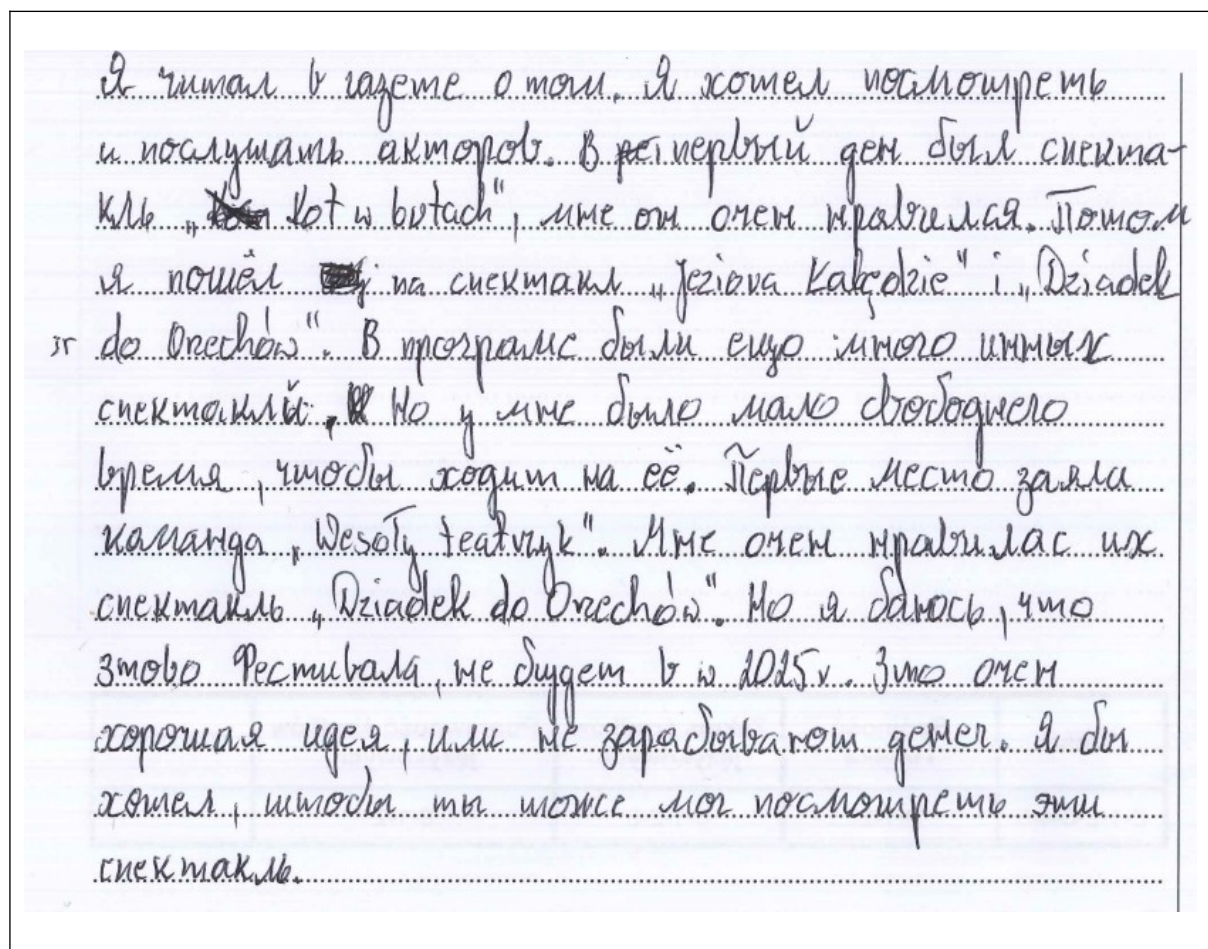 Я читал в газете о том. Я хотел посмотреть
и послушать акторов. В первый ден был спекта-
кль „Kot w butach", мне он очен нравился. Потом
я пошёл na спектакл „Jeziora Kałędzie" i „Dziadek
do Orechów". В програмс были ещо много инных
спектаклй. Но у мне было мало свободнего
время, чтобы ходит на её. Первые место заяла
каманда „Wesoły teatrzyk". Мне очен нравилас их
спектакль „Dziadek do Orechów". Но я баюсь, что
этово Фестиваля, не будет в w 2025 r. Это очен
хорошая идея, или не зарабывают денег. Я бы
хотел, штобы ты може мог посмотреть эти
спектакль.